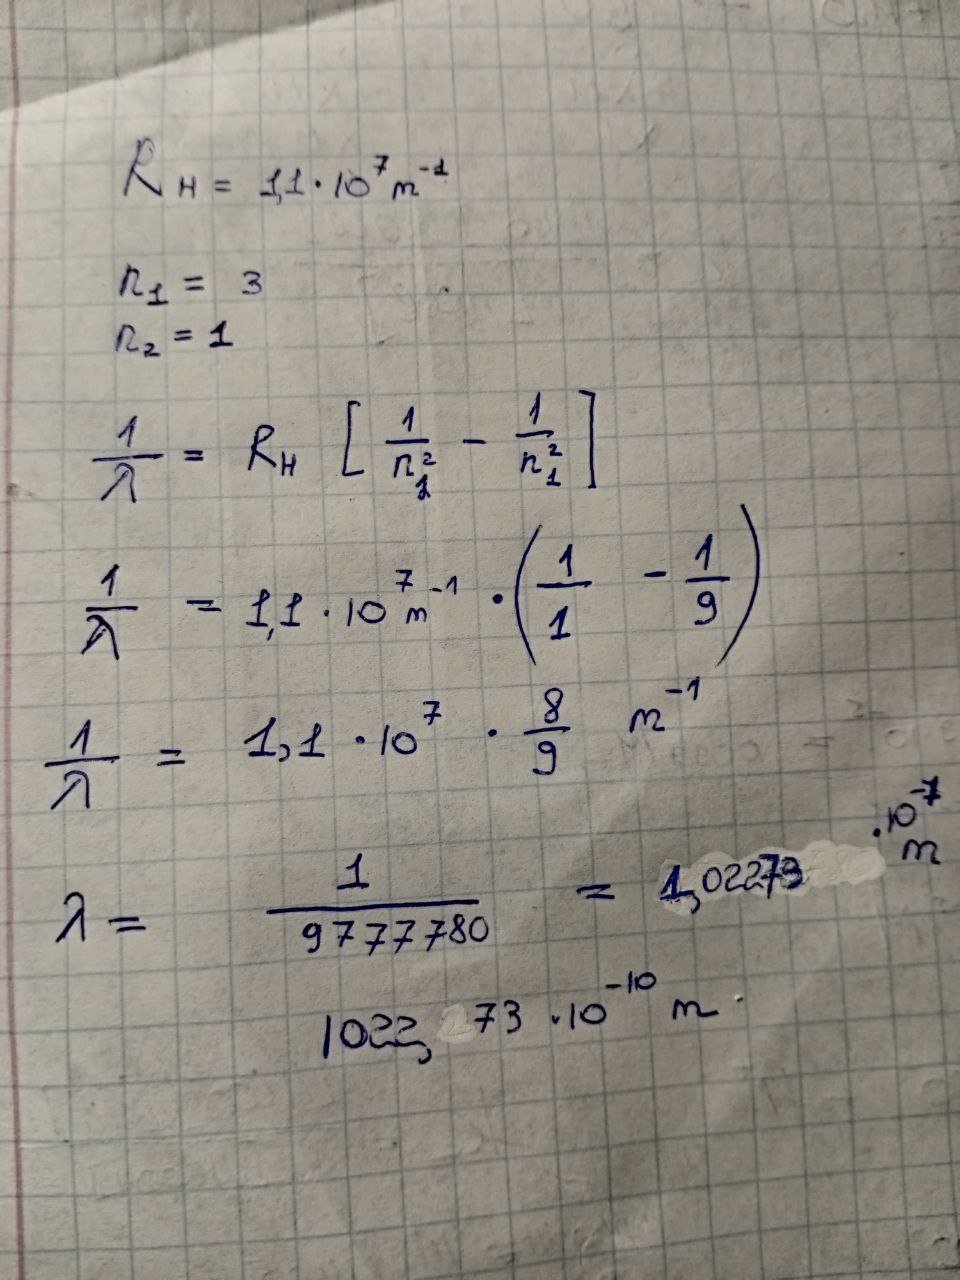 R_H = 1,1 · 10^7 m^-1
n_1 = 3
n_2 = 1
1/λ = R_H [1/n_1^2 - 1/n_1^2]
1/λ = 1,1 · 10^7 m^-1 · (1/1 - 1/9)
1/λ = 1,1 · 10^7 · 8/9 m^-1
λ = 1/9777780 = 1,02273 · 10^-7 m
1022,73 · 10^-10 m